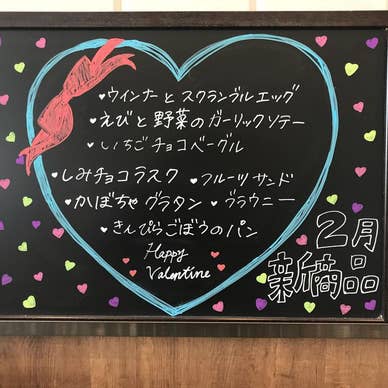 ♥ウインナーと スクランブルエッグ
♥えびと野菜のガーリックソテー
♥いちごチョコベーグル
♥しみチョコラスク ♥フルーツサンド
♥かぼちゃグラタン ♥ブラウニー
♥きんぴらごぼうのパン
Happy
Valentine
2月
新商品